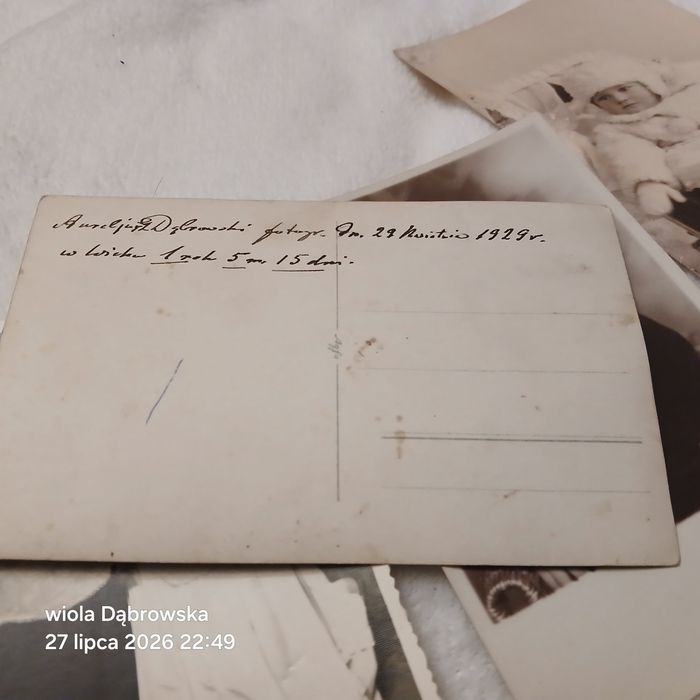 Aureljusz Dąbrowski fotogr. Dn. 29 Kwietnia 1929 r.
w wieku 1 rok 5 m. 15 dni.
wiola Dąbrowska
27 lipca 2026 22:49